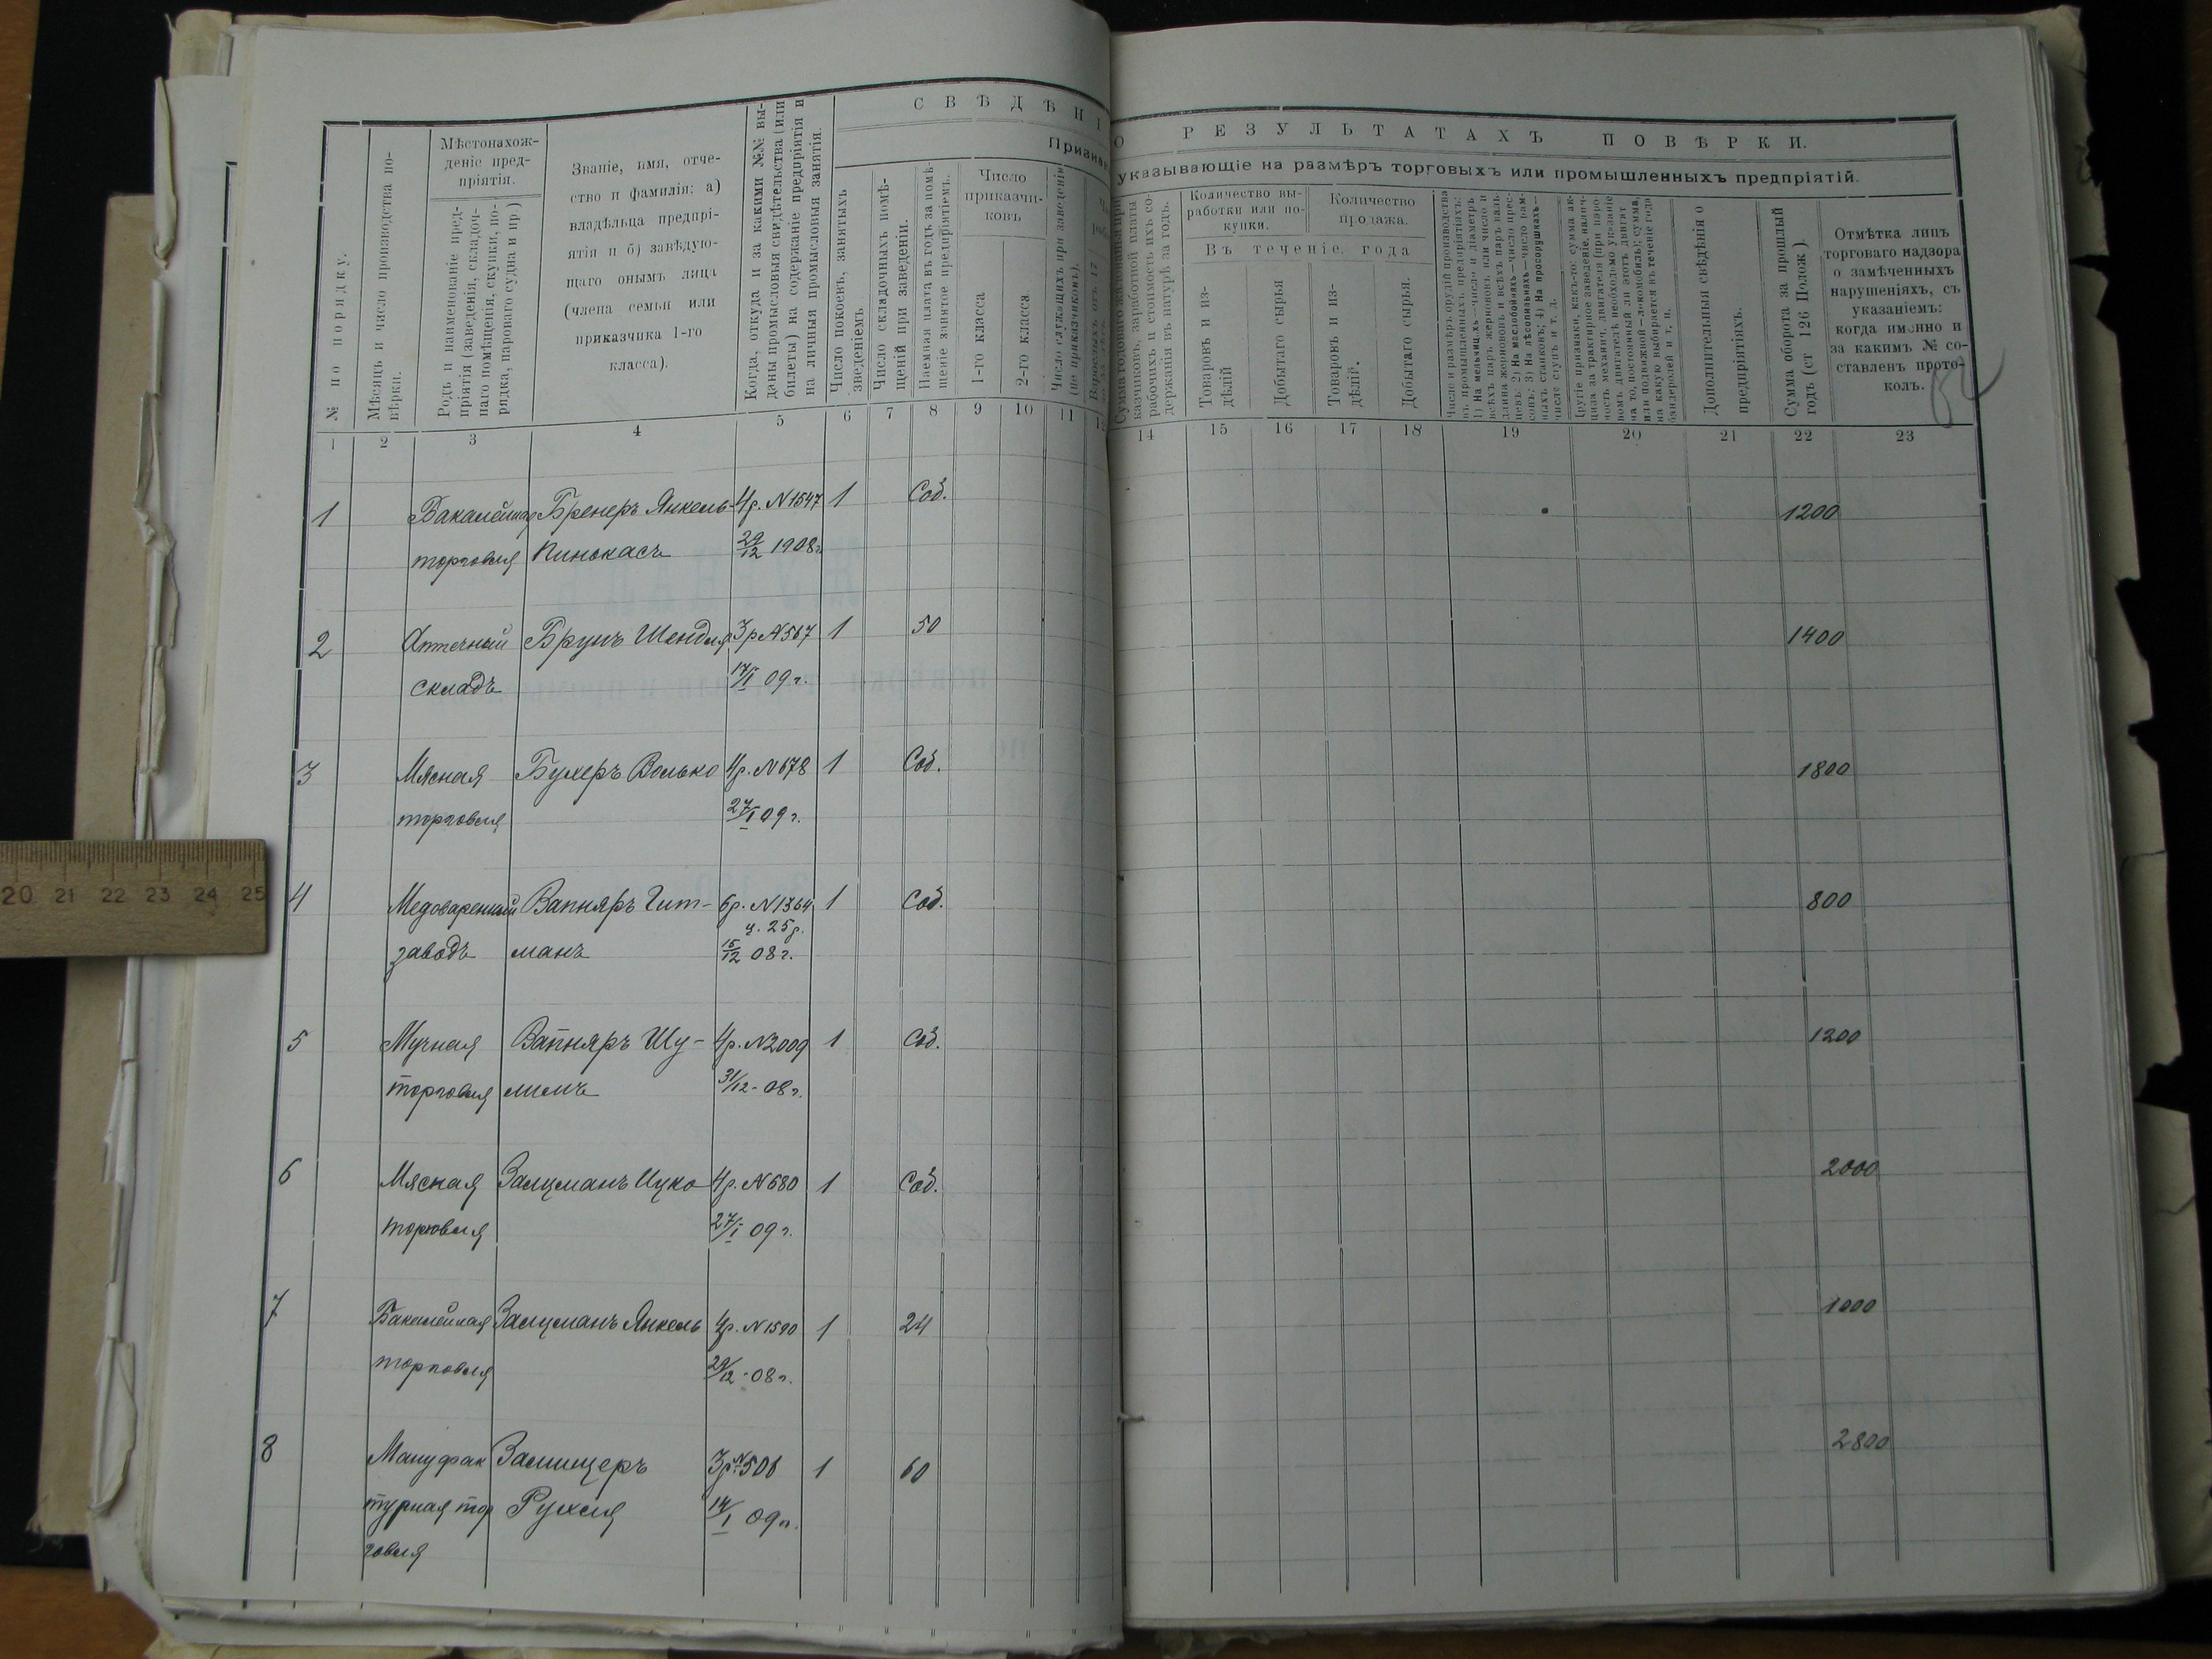 СВѢДѢНІ
О РЕЗУЛЬТАТАХЪ ПОВѢРКИ.
Признак
указывающіе на размѣръ торговыхъ или промышленныхъ предпріятій.
№ по порядку.
Мѣсяцъ и число производства по-
вѣрки.
Мѣстонахож-
деніе пред-
пріятія.
Родъ и наименованіе пред-
пріятія (заведенія, складоч-
наго помѣщенія, скупки, по-
рядка, парового судна и пр)
Званіе, имя, отче-
ство и фамилія: а)
владѣльца предпрі-
ятія и б) завѣдую-
щаго онымъ лица
(члена семьи или
приказчика 1-го
класса).
Когда, откуда и за какими №№ вы-
даны промысловыя свидѣтельства (или
билеты) на содержаніе предпріятія и
на личныя промысловыя занятія.
Число покоевъ, занятыхъ
зведеніемъ
Число складочныхъ помѣ-
щеній при заведеніи.
Наемная плата въ годъ за помѣ-
щеніе занятое предпріятіемъ.
Число
приказчи-
ковъ
1-го класса
2-го класса
Число служащихъ при заведеніи
(не приказчиковъ).
казчиковъ, заработной платы
рабочихъ и стоимость ихъ со-
держанія въ натурѣ за годъ.
Количество вы-
работки или по-
купки.
Количество
продажа.
Въ теченіе года
Товаровъ и из-
дѣлій
Добытаго сырья
Товаровъ и из-
дѣлій.
Добытаго сырья.
Число и размѣръ орудій производства
въ промышленныхъ предпріятіяхъ:
1) На мельницахъ—число и діаметръ
всѣхъ паръ жернововъ или число и
длина жернововъ и всѣхъ паръ вал-
цевъ; 2) На маслобойняхъ—число прес-
совъ; 3) На лѣсопильняхъ—число рам-
ныхъ станковъ; 4) На просорушкахъ—
число ступъ и т. д.
Другіе признаки, какъ-то: сумма ак-
циза за трактирное заведеніе, налич-
ность механич. двигателя (при паро-
вомъ двигателѣ необходимо указаніе
на то, постоянный ли этотъ двигат.
или подвижной—локомобиль); сумма,
на какую выбирается въ теченіе года
бандеролей и т. п.
Дополнительныя свѣдѣнія о
предпріятіяхъ.
Сумма оборота за прошлый
годъ (ст 126 Полож).
Отмѣтка лицъ
торговаго надзора
о замѣченныхъ
нарушеніяхъ, съ
указаніемъ:
когда именно и
за какимъ № со-
ставленъ прото-
колъ.
1 2 3 4 5 6 7 8 9 10 11 12 14 15 16 17 18 19 20 21 22 23
1 Бакалейная Бренеръ Янкель- 4р. N 1547 1 Соб. 1200
торговля Пинокасъ 29/12 1908г.
2 Аптечный Брунъ Шендля 3р N 567 1 50 1400
складъ 17/I 09 г.
3 Мясная Бухеръ Волько 4р. N 678 1 Соб. 1800
торговля 27/I 09 г.
4 Медоваренный Вапняръ Гит- 6р. N 1364 1 Соб. 800
ц. 25р.
заводъ манъ 15/12 08 г.
5 Мучная Вапняръ Шу- 4р. N 2009 1 Соб. 1200
торговля лимъ 31/12 - 08 г.
6 Мясная Залцманъ Ицко 4р. N 680 1 Соб. 2000
торговля 27/I 09 г.
7 Бакалейная Залцманъ Янкель 4р. N 1590 1 24 1000
торговля 29/12 - 08 г.
8 Мануфак Залищеръ 3р N 506 1 60 2800
турная тор Рухля 14/I 09 г.
говля
20 21 22 23 24 25